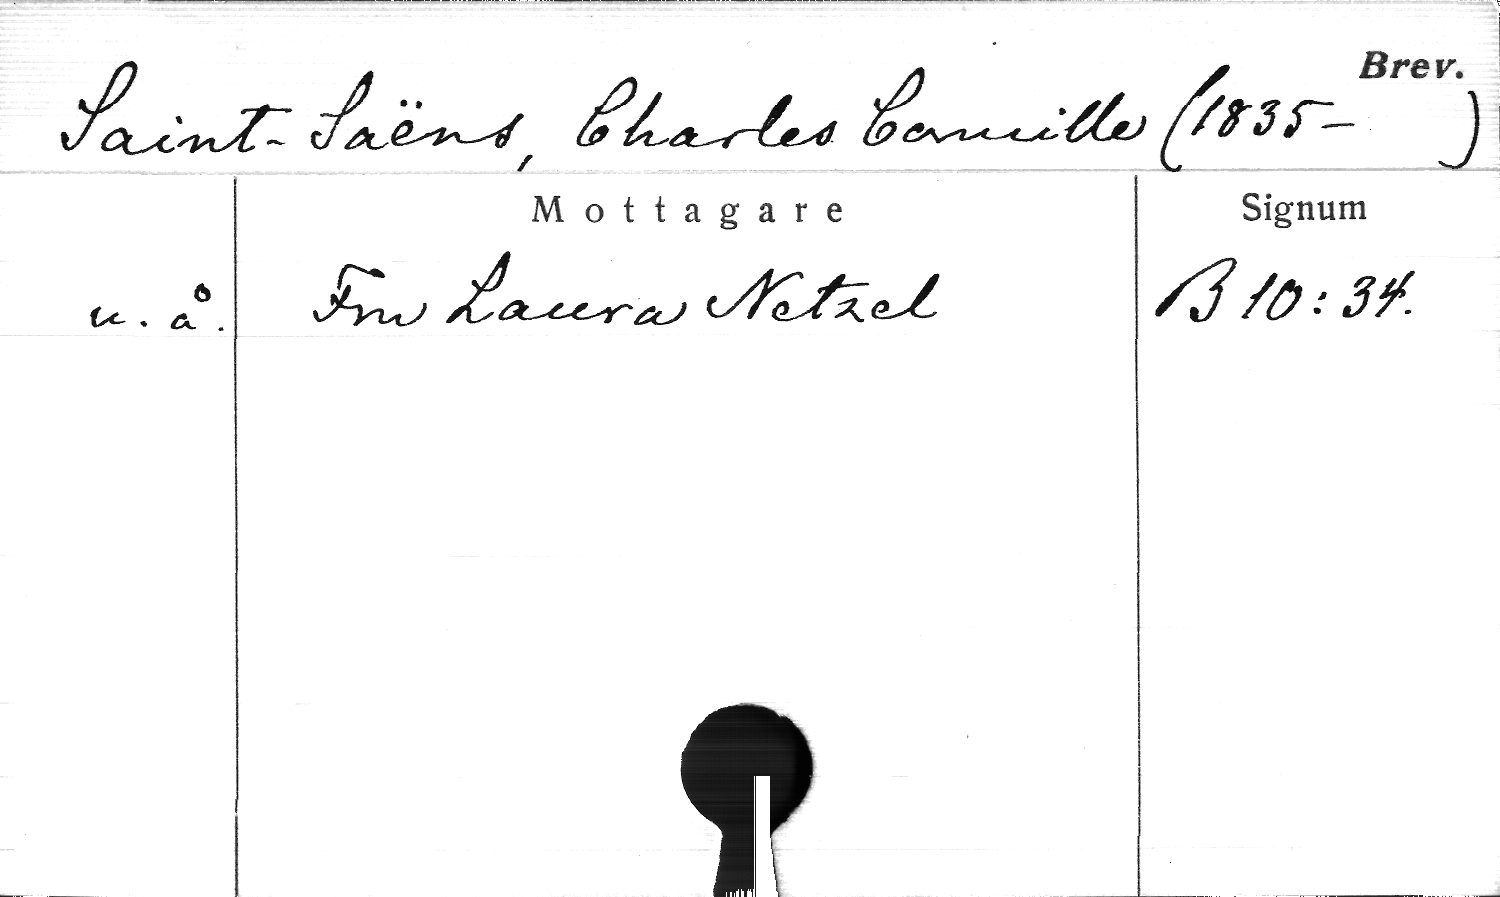 Brev.
Saint-Saëns, Charles Camille (1835- )
Mottagare Signum
u. å. Fru Laura Netzel B 10:34.